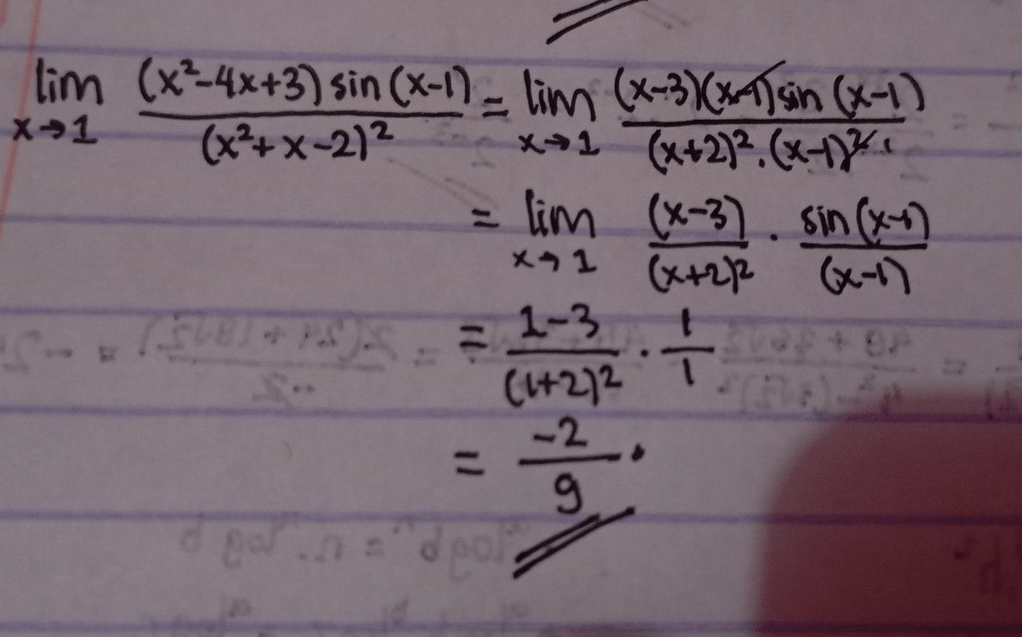 lim x→1 (x²-4x+3) sin (x-1) / (x²+x-2)² = lim x→1 (x-3)(x-1) sin (x-1) / (x+2)².(x-1)²
= lim x→1 (x-3) / (x+2)² . sin (x-1) / (x-1)
= 1-3 / (1+2)² . 1 / 1
= -2 / 9 .